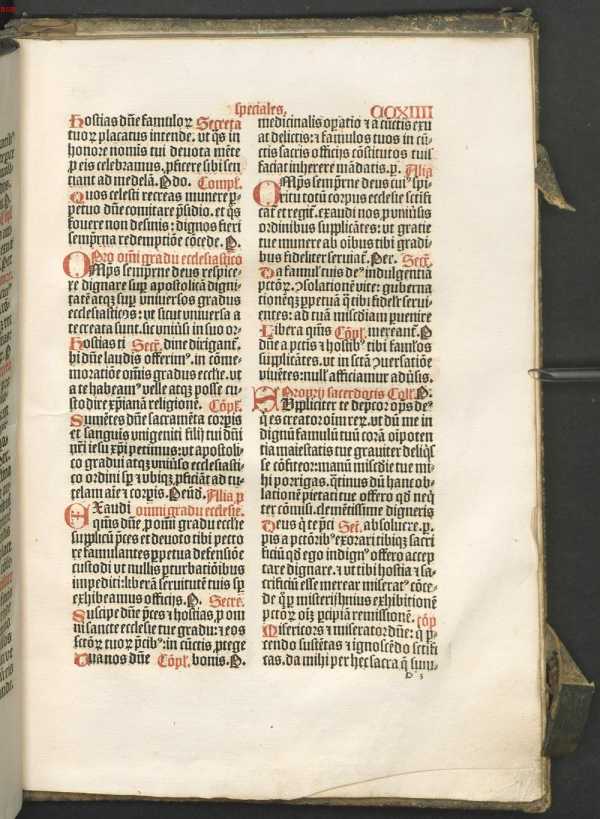 speciales, CCXIIII
Hostias dñe famuloꝝ Secreta
tuoꝝ placatus intende. vt q̃s in
honore nomĩs tui deuota mẽte
ꝓ eis celebramus, ꝓficere sibi sen
tiant ad medelã. P̃ do. Compl.
Quos celesti recreas munere ꝑ-
petuo dñe comitare p̃sidio. et q̃s
fouere non desinis: dignos fieri
sempitna redemptiõe cõcede. P.
Pro om̃i gradu ecclesiastico
OMp̃s sempitrne deus respice-
re dignare suꝑ apostolicã digni
tatẽ atqꝫ suꝑ vniuersos gradus
ecclesiasticos: vt sicut vniuersa a
te creata sunt. sic vniũs in suo or-
Hostias ti Secr̃. dine dirigant᷑.
bi dñe laudis offerim⁹. in cõme-
moratiõe om̃is gradus eccl̃ie. vt
a te habeam⁹ velle atqꝫ posse cu-
stodire xp̃ianã religionẽ. Cõpl̃.
Sumẽtes dñe sacramẽta corpis
et sanguis vnigeniti filij tui dñi
nr̃i iesu xp̃i petimus: vt apostoli-
co gradui atqꝫ vniũso ecclesiasti-
co ordini sp̃ et vbiqꝫ ꝓficiãt ad tu-
telam aĩe et corpis. P eũd. Alia ꝓ
EXaudi omni gradu ecclesie.
q̃s dñe ꝓ om̃i gradu eccl̃ie
supplicũ p̃ces et deuoto tibi pecto
re famulantes ꝑpetua defensiõe
custodi vt nullis ꝑturbatiõibus
impediti: liberã seruitutẽ tuis sp̃
exhibeamus officijs. P. Secre.
Suscipe dñe p̃ces et hostias ꝓ om
ni sancte ecclesie tue gradu: et eos
sctõꝝ tuoꝝ p̃cib⁹: in cũctis ꝓtege
Tua nos dñe Cõpl̃. bonis. P.
medicinalis oꝑatio et a cũctis exu
at delictis: et famulos tuos in cũ-
ctis sacris officijs cõstitutos tuis
faciat inherere mãdatis. p. Alia
OMp̃s sempitrne deus cui⁹ spi-
ritu totũ corpus ecclesie sctifi
cat᷑ et regit᷑. exaudi nos ꝓ vniũsis
ordinibus supplicãtes: vt gratie
tue munere ab oĩbus tibi gradi-
bus fideliter seruiat᷑. Per. Secr̃.
Da famul̃ tuis de⁹ indulgentiã
pctõꝝ. ꝯsolationẽ vite: guberna
tionẽqꝫ ꝑpetuã q̃ tibi fidel̃r serui
entes: ad tuã miscdiam puenire
Libera q̃s Cõpl̃. mereant᷑. P
dñe a pctis et hostib⁹ tibi famlõs
supplicãtes. vt in sctã ꝯuersatiõe
viuẽtes: null̃ afficiamur aduẽsis.
Proprij sacerdotis Coll̃. P.
SVppliciter te depcor op̃s de⁹
q̃ es creator oĩm reꝝ. vt dũ me in
dignũ famulũ tuũ corã oĩpoten
tia maiestatis tue grauiter deliq̃s
se cõfiteor: manũ miscdie tue mi-
hi porrigas. q̃tinus dũ hanc ob-
lationẽ pietati tue offero qd̃ neq̃
ter cõmisi. clemẽtissime digneris
Deus q̃ te p̃ci Sec̃. absoluere. p.
pis a pctõrib⁹ exorari tibiqꝫ sacri
ficiũ qd̃ ego indign⁹ offero accep
tare dignare. et vt tibi hostia et sa-
crificiũ esse merear miserat⁹ cõce-
de q̃ ꝑ misterij huius exhibitionẽ
pctõꝝ oĩm pcipiã remissionẽ. cõp
Misericors et miserator dñe: q̃ ꝑ-
cendo sustẽtas et ignoscẽdo sctifi
cas. da mihi per hec sacra q̃ sum-
D 3